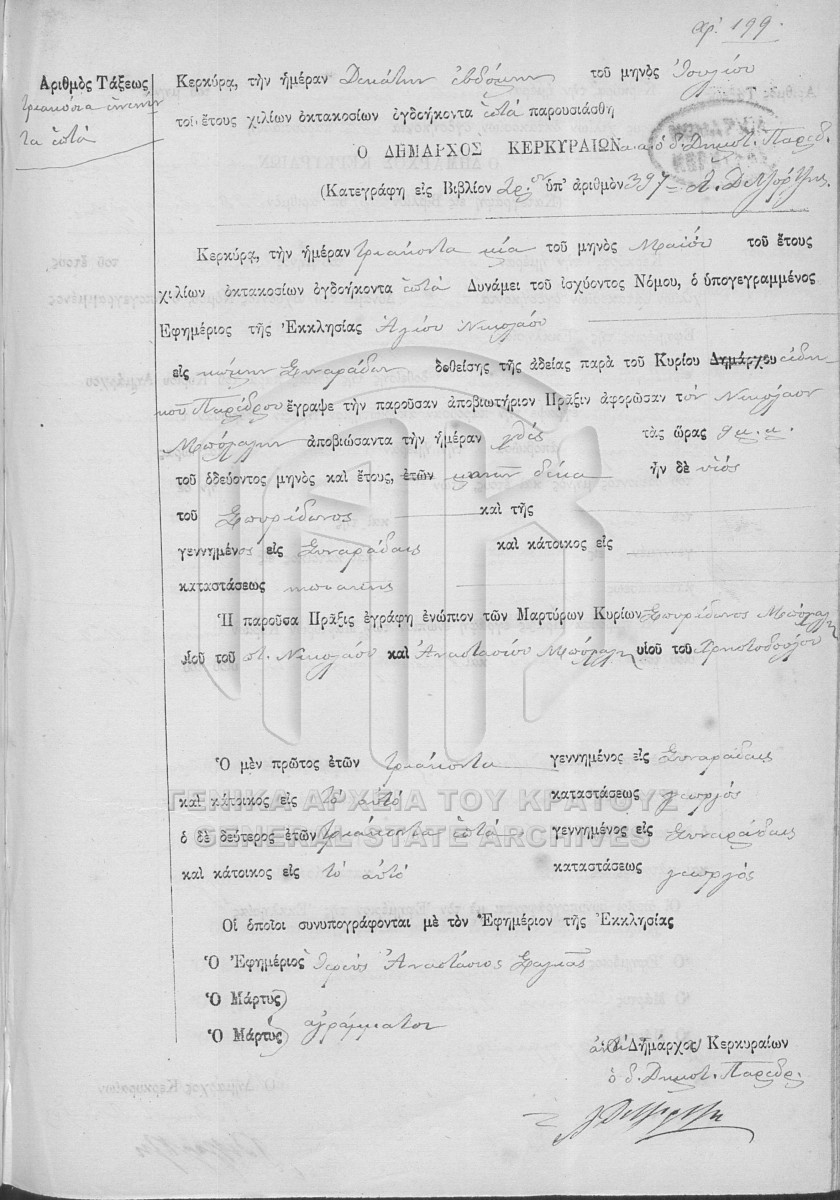 ἀρ. 199.
Ἀριθμὸς Τάξεως
τριακόσια ἐνενή
τα ἑπτά
Κερκύρᾳ, τὴν ἡμέραν Δεκάτην ἑβδόμην τοῦ μηνὸς Ἰουλίου
τοῦ ἔτους χιλίων ὀκτακοσίων ὀγδοήκοντα ἑπτὰ παρουσιάσθη
Ὁ ΔΗΜΑΡΧΟΣ ΚΕΡΚΥΡΑΙΩΝ ὁ δ. Δημοτ. Πάρεδ.
(Κατεγράφη εἰς Βιβλίον ὑπ' ἀριθμὸν 397
Κερκύρᾳ, τὴν ἡμέραν τριάκοντα μία τοῦ μηνὸς Μαΐου τοῦ ἔτους
χιλίων ὀκτακοσίων ὀγδοήκοντα ἑπτὰ Δυνάμει τοῦ ἰσχύοντος Νόμου, ὁ ὑπογεγραμμένος
Ἐφημέριος τῆς Ἐκκλησίας Ἁγίου Νικολάου
εἰς κώμην Συναράδων δοθείσης τῆς ἀδείας παρὰ τοῦ Κυρίου Δημάρχου εἰδι
κοῦ Παρέδρου ἔγραψε τὴν παροῦσαν ἀποβιωτήριον Πρᾶξιν ἀφορῶσαν τὸν Νικόλαον
Μπόραλην ἀποβιώσαντα τὴν ἡμέραν χθὲς τὰς ὥρας 9 π.μ.
τοῦ ὁδεύοντος μηνὸς καὶ ἔτους, ἐτῶν μηνῶν δέκα ἦν δὲ υἱός
τοῦ Σπυρίδωνος καὶ τῆς
γεννημένος εἰς Συναράδαις καὶ κάτοικος εἰς
καταστάσεως
Ἡ παροῦσα Πρᾶξις ἐγράφη ἐνώπιον τῶν Μαρτύρων Κυρίων Σπυρίδωνος Μπόραλη
υἱοῦ τοῦ ποτ. Νικολάου καὶ Ἀναστασίου Μπόραλη υἱοῦ τοῦ Χριστοδούλου
Ὁ μὲν πρῶτος ἐτῶν τριάκοντα γεννημένος εἰς Συναράδαις
καὶ κάτοικος εἰς τὸ αὐτό καταστάσεως γεωργός
ὁ δὲ δεύτερος ἐτῶν τριάκοντα ἑπτά γεννημένος εἰς Συναράδαις
καὶ κάτοικος εἰς τὸ αὐτό καταστάσεως γεωργός
ΓΕΝΙΚΑ ΑΡΧΕΙΑ ΤΟΥ ΚΡΑΤΟΥΣ
GENERAL STATE ARCHIVES
Οἱ ὁποῖοι συνυπογράφονται μὲ τὸν Ἐφημέριον τῆς Ἐκκλησίας
Ὁ Ἐφημέριος Ἱερεὺς Ἀναστάσιος
Ὁ Μάρτυς
Ὁ Μάρτυς ἀγράμματοι
Ὁ Δήμαρχος Κερκυραίων
ὁ δ. Δημοτ. Πάρεδρ.